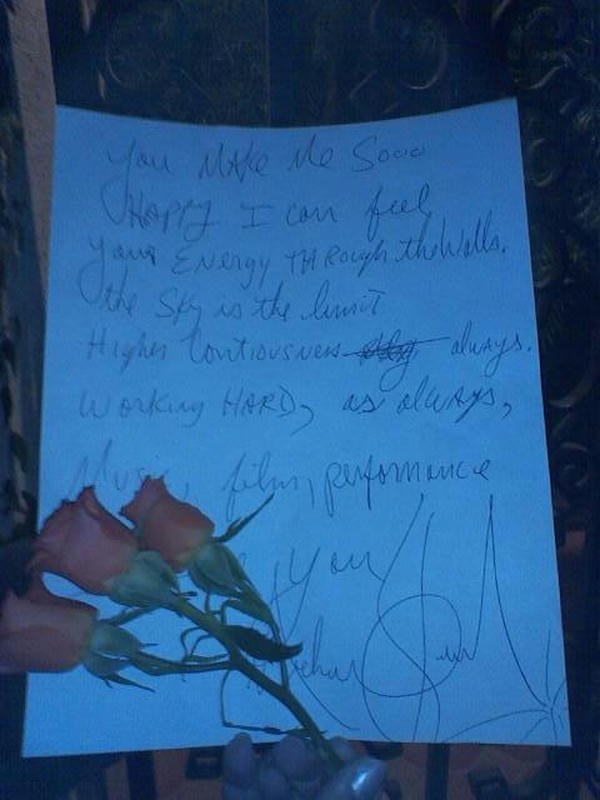 You Make Me Sooo
Happy I can feel
your Energy THRough the Walls.
the Sky is the limit
Higher Contiousness always.
Working HARD, as always,
Music, film, performance
You